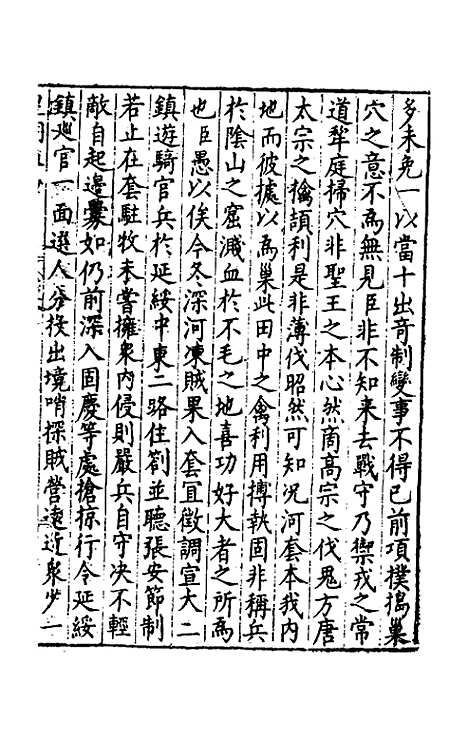 多未免一以當十出竒制變事不得已前項樸搗巢
穴之意不為無見臣非不知来去戰守乃禦戎之常
道犂庭掃穴非聖王之本心然商高宗之伐鬼方唐
太宗之擒頡利是非薄伐昭然可知况河套本我内
地而彼據以為巢此田中之禽利用搏執固非稱兵
於陰山之窟濺血於不毛之地喜功好大者之所為
也臣愚以俟今冬深河凍賊果入套宜徵調宣大二
鎮遊騎官兵於延綏中東二路住劄並聽張安節制
若止在套駐牧未嘗擁衆内侵則嚴兵自守决不輕
敵自起邊釁如仍前深入固慶等處搶掠行令延綏
鎮廵官一面選人分投出境哨探賊營遠近衆少一